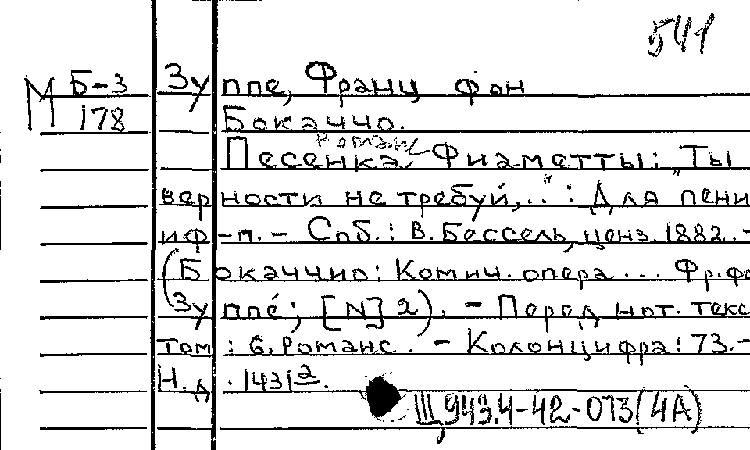 541
М Б-3 Зуппе, Франц фон
178 Бокаччо.
романс
Песенка Фиаметты: „Ты
верности не требуй,..": Для пени
и ф-п. - Спб.: В. Бессель, ценз. 1882. -
(Бокаччио: Комич. опера ... Фр. фо
Зуппе; [N] 2). - Перед нот. текс
том: 6. Романс. - Колонцифра: 73. -
Н.д. 1431 2.
Ш 943.4-42-013(4А)